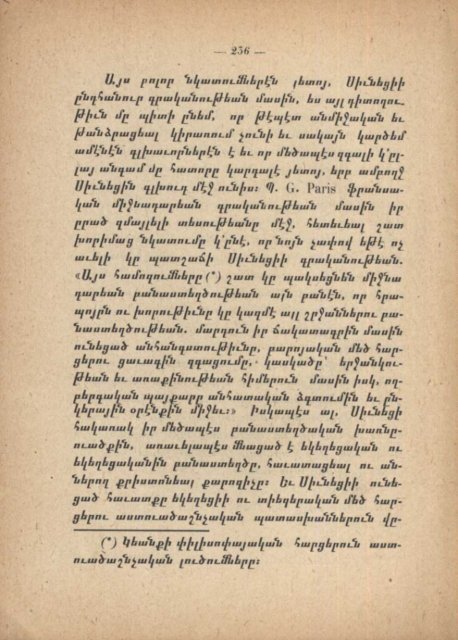 — 236 —
Այս բոլոր նկատումներէն յետոյ, Սիւնեցիի
ընդհանուր գրականութեան մասին, ես այլ դիտողու-
թիւն մը պիտի ընեմ, որ թէպէտ անմիջական եւ
թանձրացեալ կիրառում չունի եւ սակայն կարծեմ
ամէնէն գլխաւորներէն է եւ որ մեծապէս զգալի կ'ըլ-
լայ անգամ մը հատորը կարդալէ յետոյ, երբ ամբողջ
Սիւնեցին գլխուդ մէջ ունիս: Պ. G. Paris ֆրանսա-
կան միջնադարեան գրականութեան մասին իր
ըրած զմայլելի տեսութեանը մէջ, հետեւեալ շատ
խորիմաց նկատումը կ'ընէ, որ նոյն չափով եթէ ոչ
աւելի կը պատշաճի Սիւնեցիի գրականութեան.
«Այս համոզումները (*) շատ կը պակսեցնեն միջնա
դարեան բանաստեղծութեան այն բանէն, որ հրա-
պոյրն ու խորութիւնը կը կազմէ այլ շրջաններու բա-
նաստեղծութեան. մարդուն իր ճակատագրին մասին
ունեցած անհանգստութիւնը, բարոյական մեծ հար-
ցերու ցաւագին զգացումը, կասկածը՝ երջանկու-
թեան եւ առաքինութեան հիմերուն մասին իսկ, ող-
բերգական պայքարը անհատական ձգտումին եւ ըն-
կերային օրէնքին միջեւ:» Իսկապէս ալ, Սիւնեցի
հակառակ իր մեծապէս բանաստեղծական խառնը-
ուածքին, առաւելապէս մնացած է եկեղեցական ու
եկեղեցականին բանաստեղծը, հաւատացեալ ու ան-
ներող քրիստոնեայ քարոզիչը: Եւ Սիւնեցիի ունե-
ցած հաւատքը եկեղեցիի ու տիեզերական մեծ հար-
ցերու աստուածաշնչական պատասխաններուն վը-
(*) Կեանքի փիլիսոփայական հարցերուն աստ-
ուածաշնչական լուծումները: